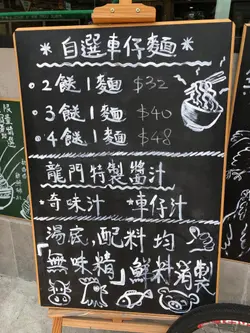 *自選車仔麵*
•2餸1麵 $32
•3餸1麵 $40
•4餸1麵 $48
龍門特製醬汁
*奇味汁 *車仔汁
湯底,配料均
「無味精」鮮料消製